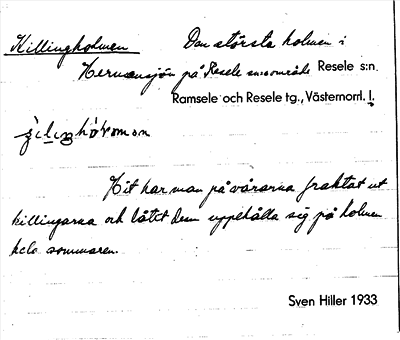 Killingholmen Den största holmen i
Hermansjön på Resele s:nsområde Resele s:n.
Ramsele och Resele tg., Västernorrl. l.
Hit har man på vårarna fraktat ut
killingarna och låtit dem uppehålla sig på holmen
hela sommaren.
Sven Hiller 1933